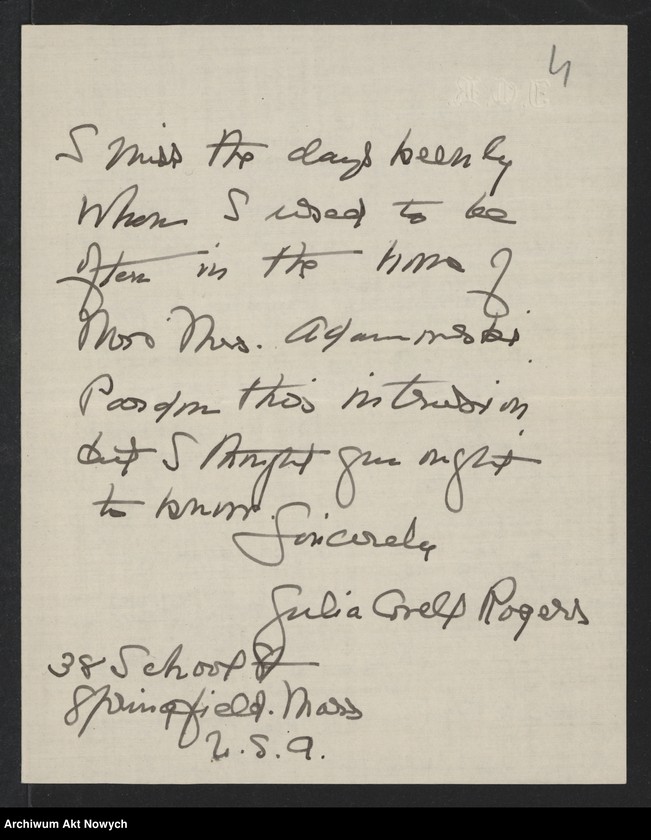 4
I miss the days keenly
When I used to be
often in the home of
Mr & Mrs. Adamowski
Pardon this intrusion
but I thought you ought
to know.
Sincerely
Julia Rogers
38 School St
Springfield. Mass
U.S.A.
Archiwum Akt Nowych